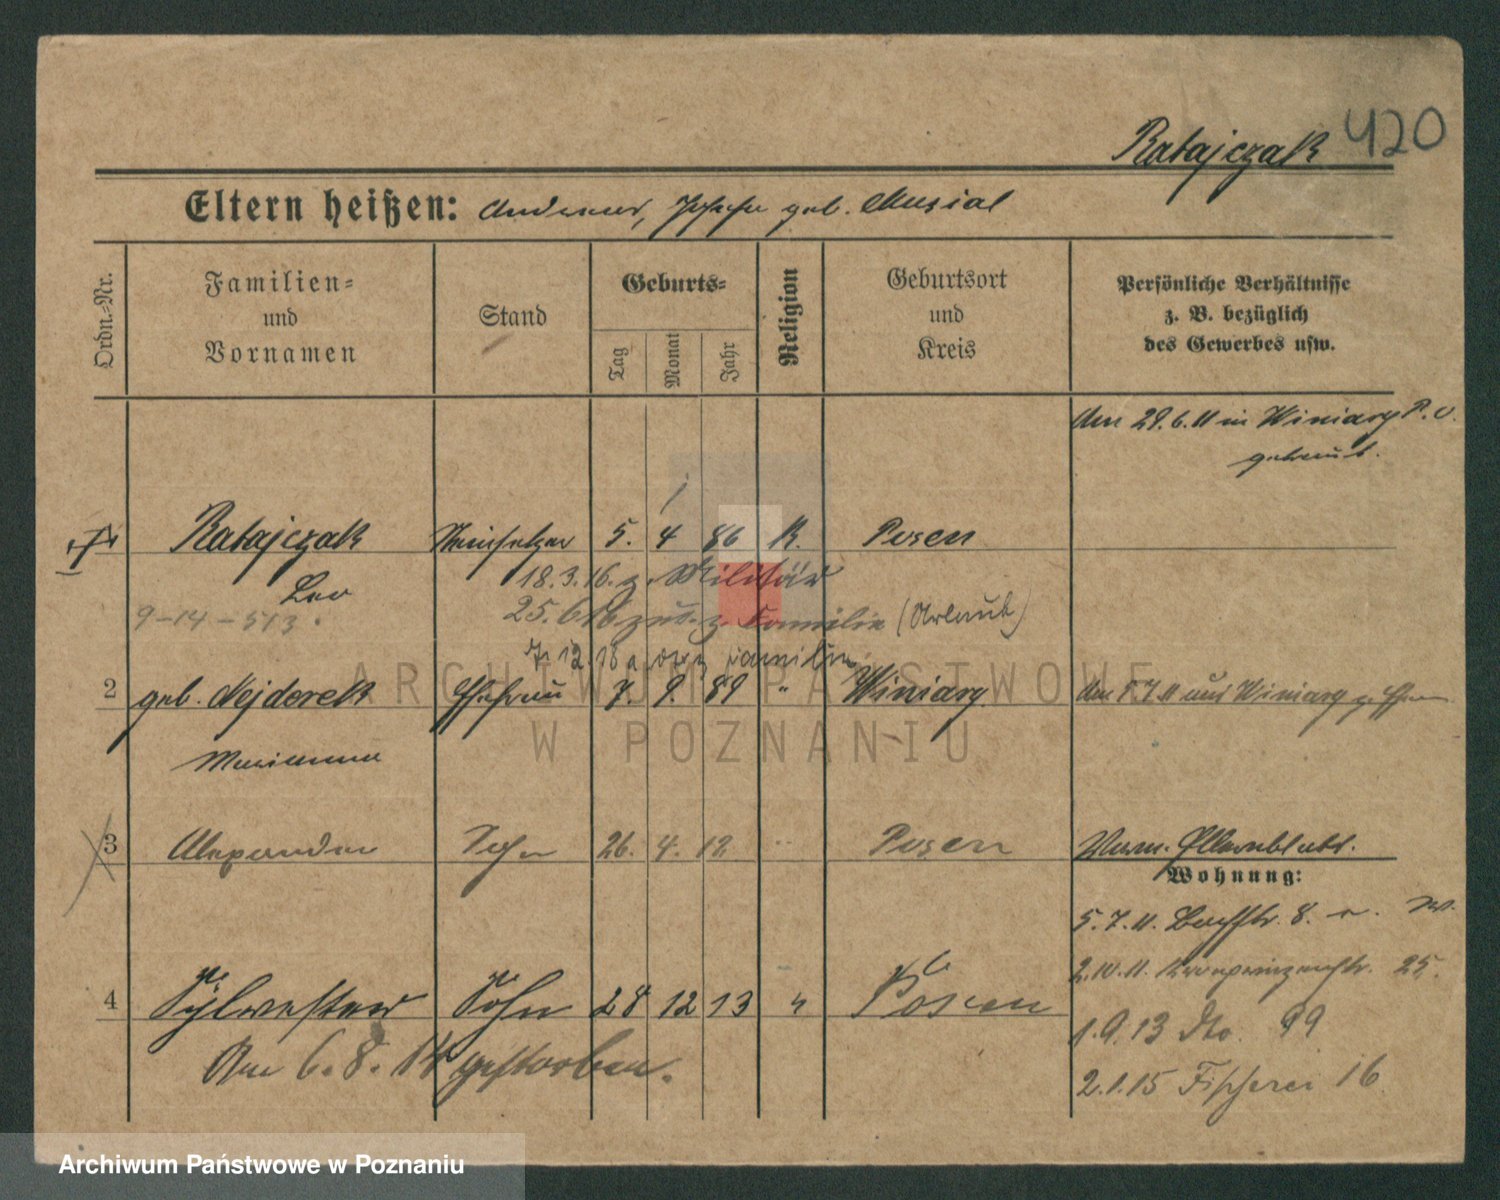 Ratajczak 420
Eltern heißen: Andreas, Josefa geb. Musial
Ordn.-Nr.
Familien-
und
Vornamen
Stand
Geburts-
Tag
Monat
Jahr
Religion
Geburtsort
und
Kreis
Persönliche Verhältnisse
z. B. bezüglich
des Gewerbes usw.
Am 29.6.11 in Winiary P. O.
getraut.
Ratajczak Steinsetzer 5. 4 86 K. Posen
Leo
18.3.16. z. Militär
9-14-513.
25.6.16 zur. z. Familie (Urlaub)
12.18 Familie
2 geb. Nejderek Ehefrau 7. 9. 89 " Winiary Am 5.7.11 aus Winiary z.
Marianna
3 Alexander Sohn 26. 4. 12 " Posen
Wohnung:
5.7.11. Bachstr. 8.
2.10.11. Kronprinzenstr. 25.
4 Sylwester Sohn 28 12 13 " Posen
1.9.13 Dto. 99
Am 6.8.14 gestorben.
2.1.15 Fischerei 16
ARCHIWUM PAŃSTWOWE
W POZNANIU
Archiwum Państwowe w Poznaniu